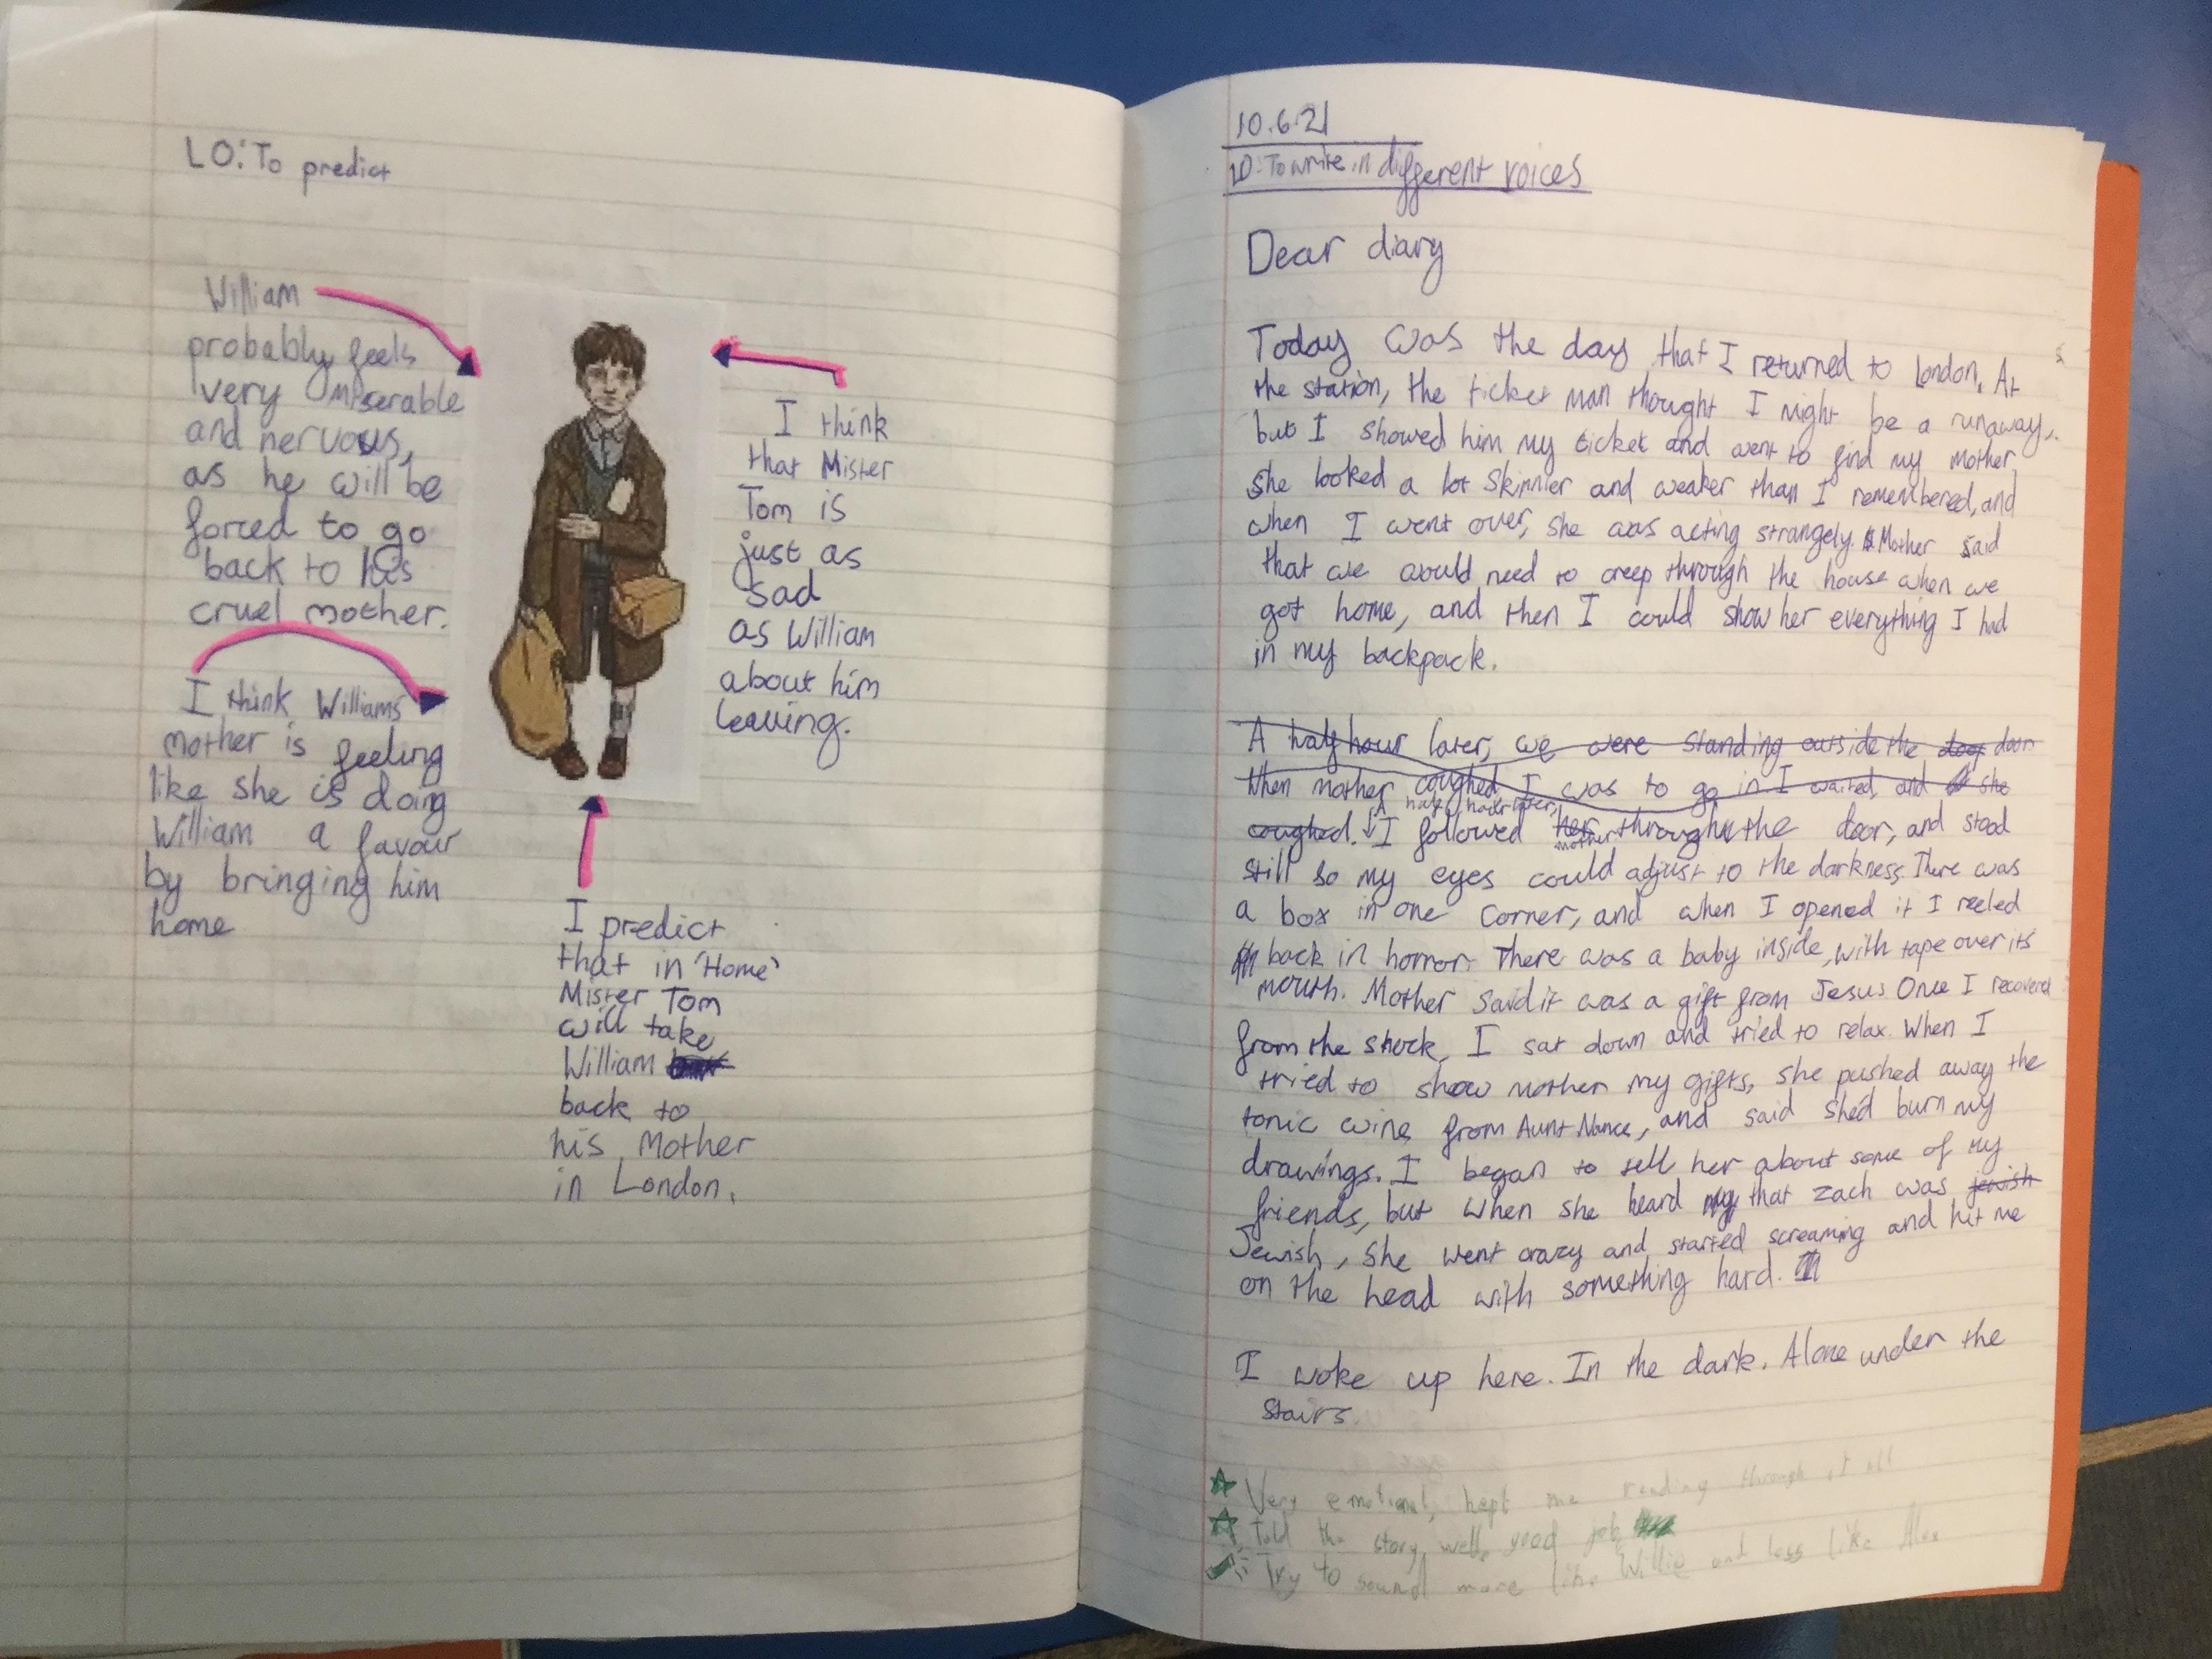 LO: To predict
William
probably feels
very miserable
and nervous,
as he will be
forced to go
back to his
cruel mother.
I think Williams
mother is feeling
like she is doing
William a favour
by bringing him
home
I think
that Mister
Tom is
just as
sad
as William
about him
leaving.
I predict
that in 'Home'
Mister Tom
will take
William
back to
his Mother
in London.
10.6.21
LO: To write in different voices
Dear diary
Today was the day that I returned to London. At
the station, the ticket man thought I might be a runaway,
but I showed him my ticket and went to find my mother.
She looked a lot skinnier and weaker than I remembered, and
when I went over, she was acting strangely. Mother said
that we would need to creep through the house when we
got home, and then I could show her everything I had
in my backpack.
A half hour later, we were standing outside the door
When mother coughed, I was to go in. I waited, and she
A half hour later,
coughed. I followed her mother through the door, and stood
still so my eyes could adjust to the darkness. There was
a box in one corner, and when I opened it I reeled
back in horror. There was a baby inside, with tape over its
mouth. Mother said it was a gift from Jesus Once I recovered
from the shock, I sat down and tried to relax. When I
tried to show mother my gifts, she pushed away the
tonic wine from Aunt Nance, and said she'd burn my
drawings. I began to tell her about some of my
friends, but when she heard that Zach was jewish
Jewish, she went crazy and started screaming and hit me
on the head with something hard.
I woke up here. In the dark. Alone under the
stairs.
Very emotional, kept me reading through it all
Told the story well, good job
Try to sound more like Willie and less like Alex